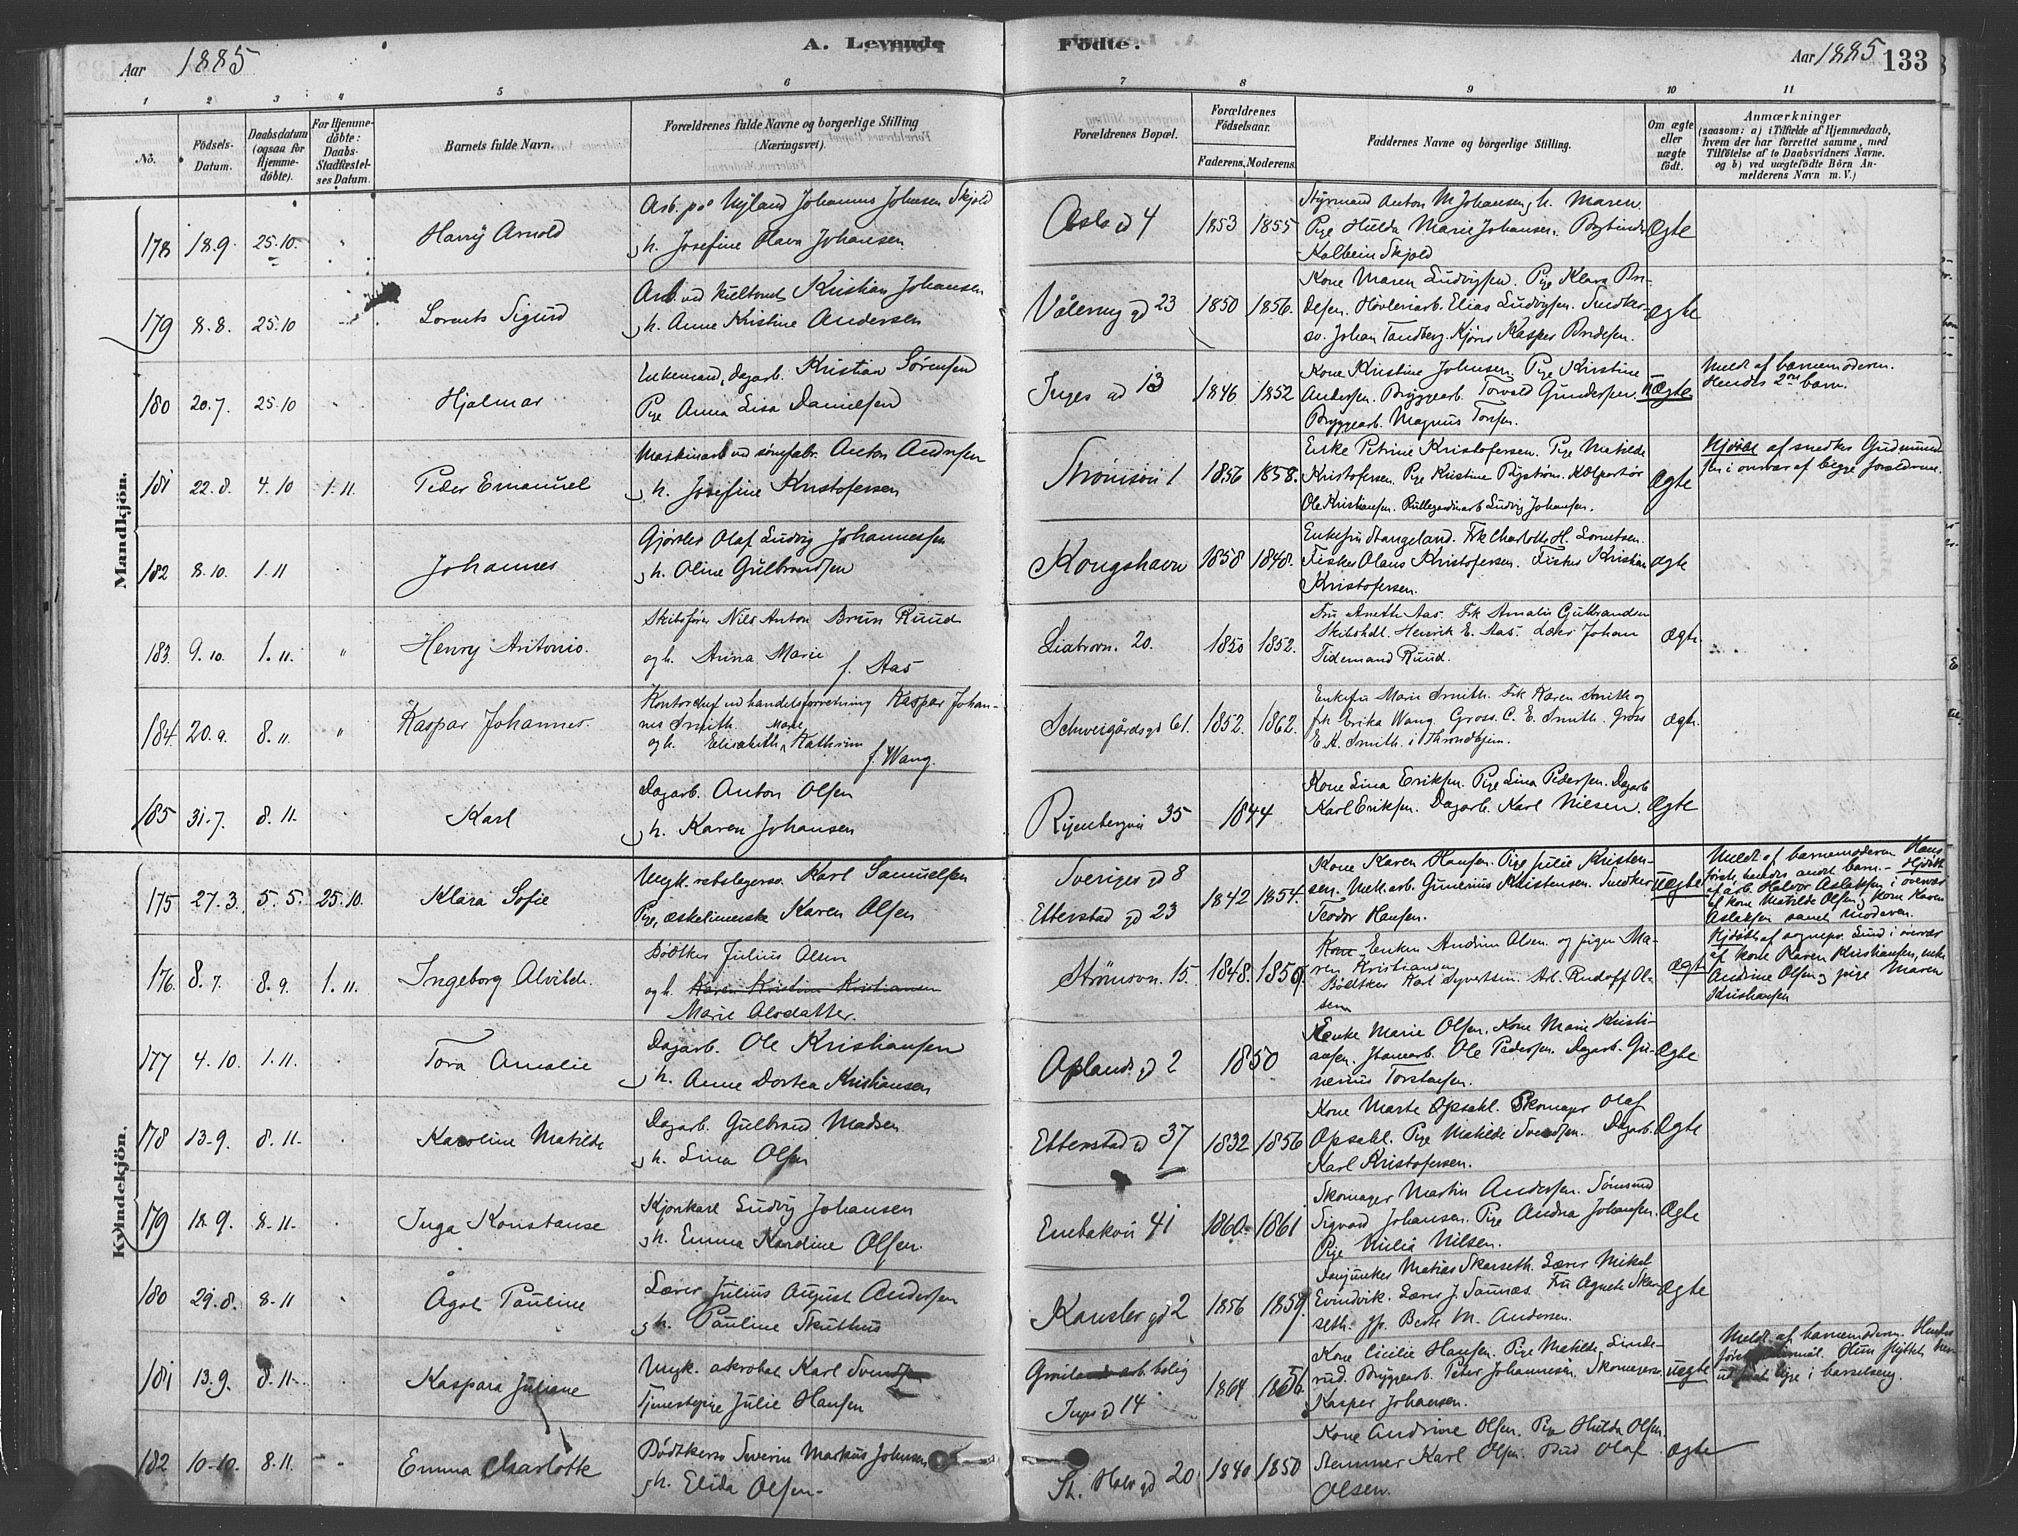 A. Levende Födte.
Aar 1885
Aar 1885 133
1 2 3 4 5 6 7 8 9 10 11
No.
Födsels-Datum.
Daabsdatum (ogsaa for Hjemmedöbte).
For Hjemmedöbte: Daabs-Stadfæstelses Datum.
Barnets fulde Navn.
Forældrenes fulde Navne og borgerlige Stilling (Næringsvei).
Forældrenes Bopæl.
Forældrenes Födselsaar.
Faderens. Moderens.
Faddernes Navne og borgerlige Stilling.
Om ægte eller uægte födt.
Anmærkninger
(saasom: a) i Tilfælde af Hjemmedaab, hvem der har forrettet samme, med Tilföielse af to Daabsvidners Navne, og b) ved uægtefödte Börn Anmelderens Navn m. V.)
Mandkjön.
178 18.9 25.10 Harry Arnold
Arb. på Nyland Johannes Johnsen Skjold
og h. Josefine Olava Johansen
Oslo gd 4 1853 1855
Styrmand Anton M Johansen, h. Maren
Pige Hulda Marie Johansen.
Kolbein Skjold
Ægte
179 8.8. 25.10 Lorents Sigurd
Arb. ved Kristian Johansen
og h. Anne Kristine Andersen
Vålereng gd 23 1850 1856.
Kone Maren Ludvigsen. Pige Klara Bri-
delsen. Høvleriarb. Elias Ludvigsen. Snedker-
sv. Johan Tandberg. Kjører Kasper Bridelsen.
Ægte
180 20.7. 25.10 Hjalmar
Enkemand, dagarb. Kristian Sørensen
Pige Anna Lisa Danielsen
Inges gd 13 1846 1852
Kone Kristine Johnsen. Pige Kristine
Andersen. Bryggearb. Torvald Gundersen.
Bryggearb. Magnus Torsen.
Uægte
Meldt af barnemoderen.
Hendes 2det barn.
181 22.8. 4.10 1.11. Peder Emanuel
Maskinarb. ved sømfabr. Anton Andersen
og h. Josefine Kristofersen
Strømsvn 1 1856 1858.
Enke Petrine Kristofersen. Pige Matilde
Kristofersen. Pige Kristine Bystrøm. Kolportør
Ole Kristiansen. Rullegardinarb Ludvig Johansen.
Ægte
Hjdøbt af snedker Gudmund-
sen i overvær af begge forældrene.
182 8.10. 1.11 Johannes
Gjørtler Olaf Ludvig Johannessen
og h. Oline Gulbrandsen
Kongshavn 1858 1848.
Enkefru Stangeland. Frk Charlotte H. Lorentsen.
Fisker Olaus Kristofersen. Fisker Kristian
Kristofersen.
ægte
183. 9.10. 1.11. " Henry Antonio.
Skibsfører Nils Anton Brun Ruud
og h. Anna Marie f. Aas
Liabrovn. 20. 1850 1852.
Fru Anette Aas. Frk Amalie Gulbrandsen
Skibshdl. Henrik E. Aas. Lærer Johan
Tidemand Ruud.
ægte
184. 20.9. 8.11. " Kaspar Johannes.
Kontorchef ved handelsforretning Kaspar Johan-
nes Smith
og h. Elisabeth Marie Kathrine f. Wang.
Schweigårdsgd 61. 1852. 1862.
Enkefru Marie Smith. Frk Karen Smith og
frk Erika Wang. Gross. C. E. Smith. Gross
E. A. Smith. i Throndhjem.
ægte
185 31.7. 8.11. Karl
Dagarb. Anton Olsen
og h. Karen Johansen
Ryenbergvn 35 1844
Kone Lina Eriksen. Pige Lina Pedersen. Dagarb
Karl Eriksen. Dagarb. Karl Nilsen.
Ægte
Kvindekjön.
175 27.3. 5.5. 25.10. Klara Sofie
Ungk. rebslagersv. Karl Samuelsen
Pige, æskelimerske Karen Olsen
Sveriges gd 8
Etterstad gd 23 1842 1854.
Kone Karen Hansen. Pige Julie Kristen-
sen. Mek.arb. Gunerius Kristensen. Snedker
Teodor Hansen.
Uægte
Meldt af barnemoderen. Hans
første, hendes andet barn. - Hjdøbt
af arb. Halvor Aslaksen i overvær
af kone Matilde Olsen, kone Karen
Aslaksen samt moderen.
176. 8.7. 8.9. 1.11. Ingeborg Alvilde.
Bødtker Julius Olsen
og h. Karen Kristine Kristiansen
Marie Olsdatter.
Strømsvn. 15. 1848. 1850.
Kone Enken Andrine Olsen. og pigen Ma-
ren Kristiansen
Bødtker Karl Syvertsen. Arb. Rudolf Ol-
sen
ægte
Hjdøbt af sognepr. Lund i overvær
af kone Karen Kristiansen, enke
Andrine Olsen og pige Maren
Kristiansen
177 4.10. 1.11. Tora Amalie
Dagarb. Ole Kristiansen
og h. Anne Dortea Kristiansen
Oplands gd 2 1850
Enke Marie Olsen. Kone Marie Kristi-
ansen. Ole Pedersen. Dagarb. Gu-
nerius Torstensen.
Ægte
178 13.9. 8.11. Karoline Matilde
Dagarb. Gulbrand Madsen
og h. Lina Olsen
Etterstad gd 37 1832 1856
Kone Marte Opsahl. Skomager Olaf
Opsahl. Pige Matilde Svendsen. Dagarb.
Karl Kristofersen.
Ægte
179 18.9. 8.11. Inga Konstanse
Kjørekarl Ludvig Johansen
og h. Emma Karoline Olsen.
Enebakvn 41 1860. 1861
Skomager Martin Andersen. Tømmermd
Sigvard Johansen. Pige Andrea Johansen.
Pige Julia Nilsen.
Ægte
180 29.8. 8.11 Ågot Pauline
Lærer Julius August Andersen
og h. Pauline Skuthus
Kansler gd 2 1856 1859.
Matias Skarseth. Lærer Mikal
Evindvik. Lærer J. Saunæs. Fru Agnete Skar-
seth. Jfr. Berte M. Andersen.
Ægte
181 13.9. 8.11. Kaspara Juliane
Ungk. akrobat Karl Svendsen
Tjenestepige Julie Hansen
Grønland arb. bolig
Inges gd 14 1864 1856
Kone Cicilie Hansen. Pige Matilde Linde-
rud. Bryggearb. Peter Johannesen. Skomagersv
Kasper Johansen.
uægte
Meldt af barnemoderen. Hendes
første Hun flyttet her
ud for at ligge i barselseng.
182 10.10. 8.11. Emma Charlotte
Bødtkersv Severin Markus Johnsen
og h. Elida Olsen.
St. Halv gd 20 1840 1850
Kone Andrine Olsen. Pige Hulda Olsen.
Stemmer Karl Olsen. Bud Olaf
Olsen.
Ægte